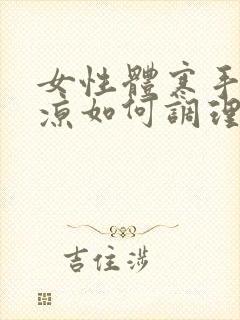 女性體寒手
涼如何調理
吉住涉